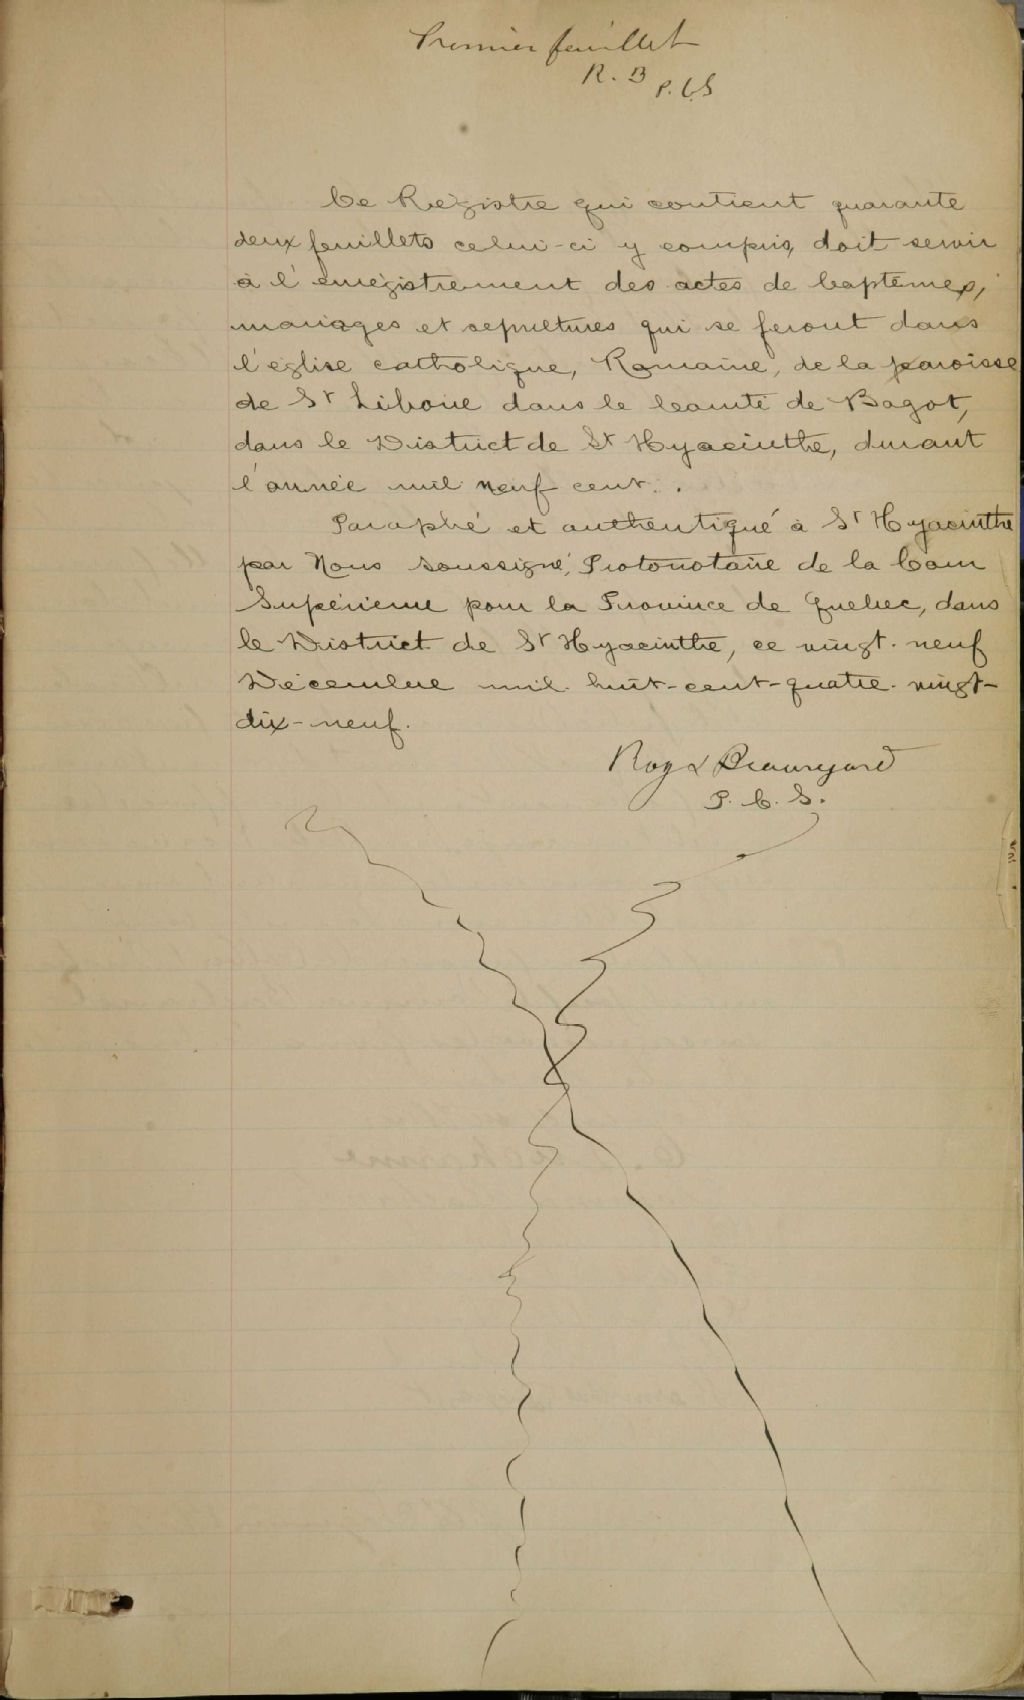 Premier feuillet
R. B P.C.S
Ce Régistre qui contient quarante
deux feuillets celui-ci y compris, doit servir
à l'enrégistrement des actes de baptêmes,
mariages et sepultures qui se feront dans
l'église catholique, Romaine, de la paroisse
de St Liboire dans le Comté de Bagot,
dans le District de St Hyacinthe, durant
l'année mil neuf cent.
Paraphé et authentiqué à St Hyacinthe
par Nous soussigné, Protonotaire de la Cour
Supérieure pour la Province de Quebec, dans
le District de St Hyacinthe, ce vingt-neuf
Décembre mil-huit-cent-quatre-vingt-
dix-neuf.
Roy & Beauregard
P. C. S.